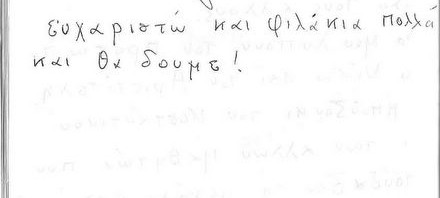 ευχαριστώ και φιλάκια πολλά
και θα δουμε!